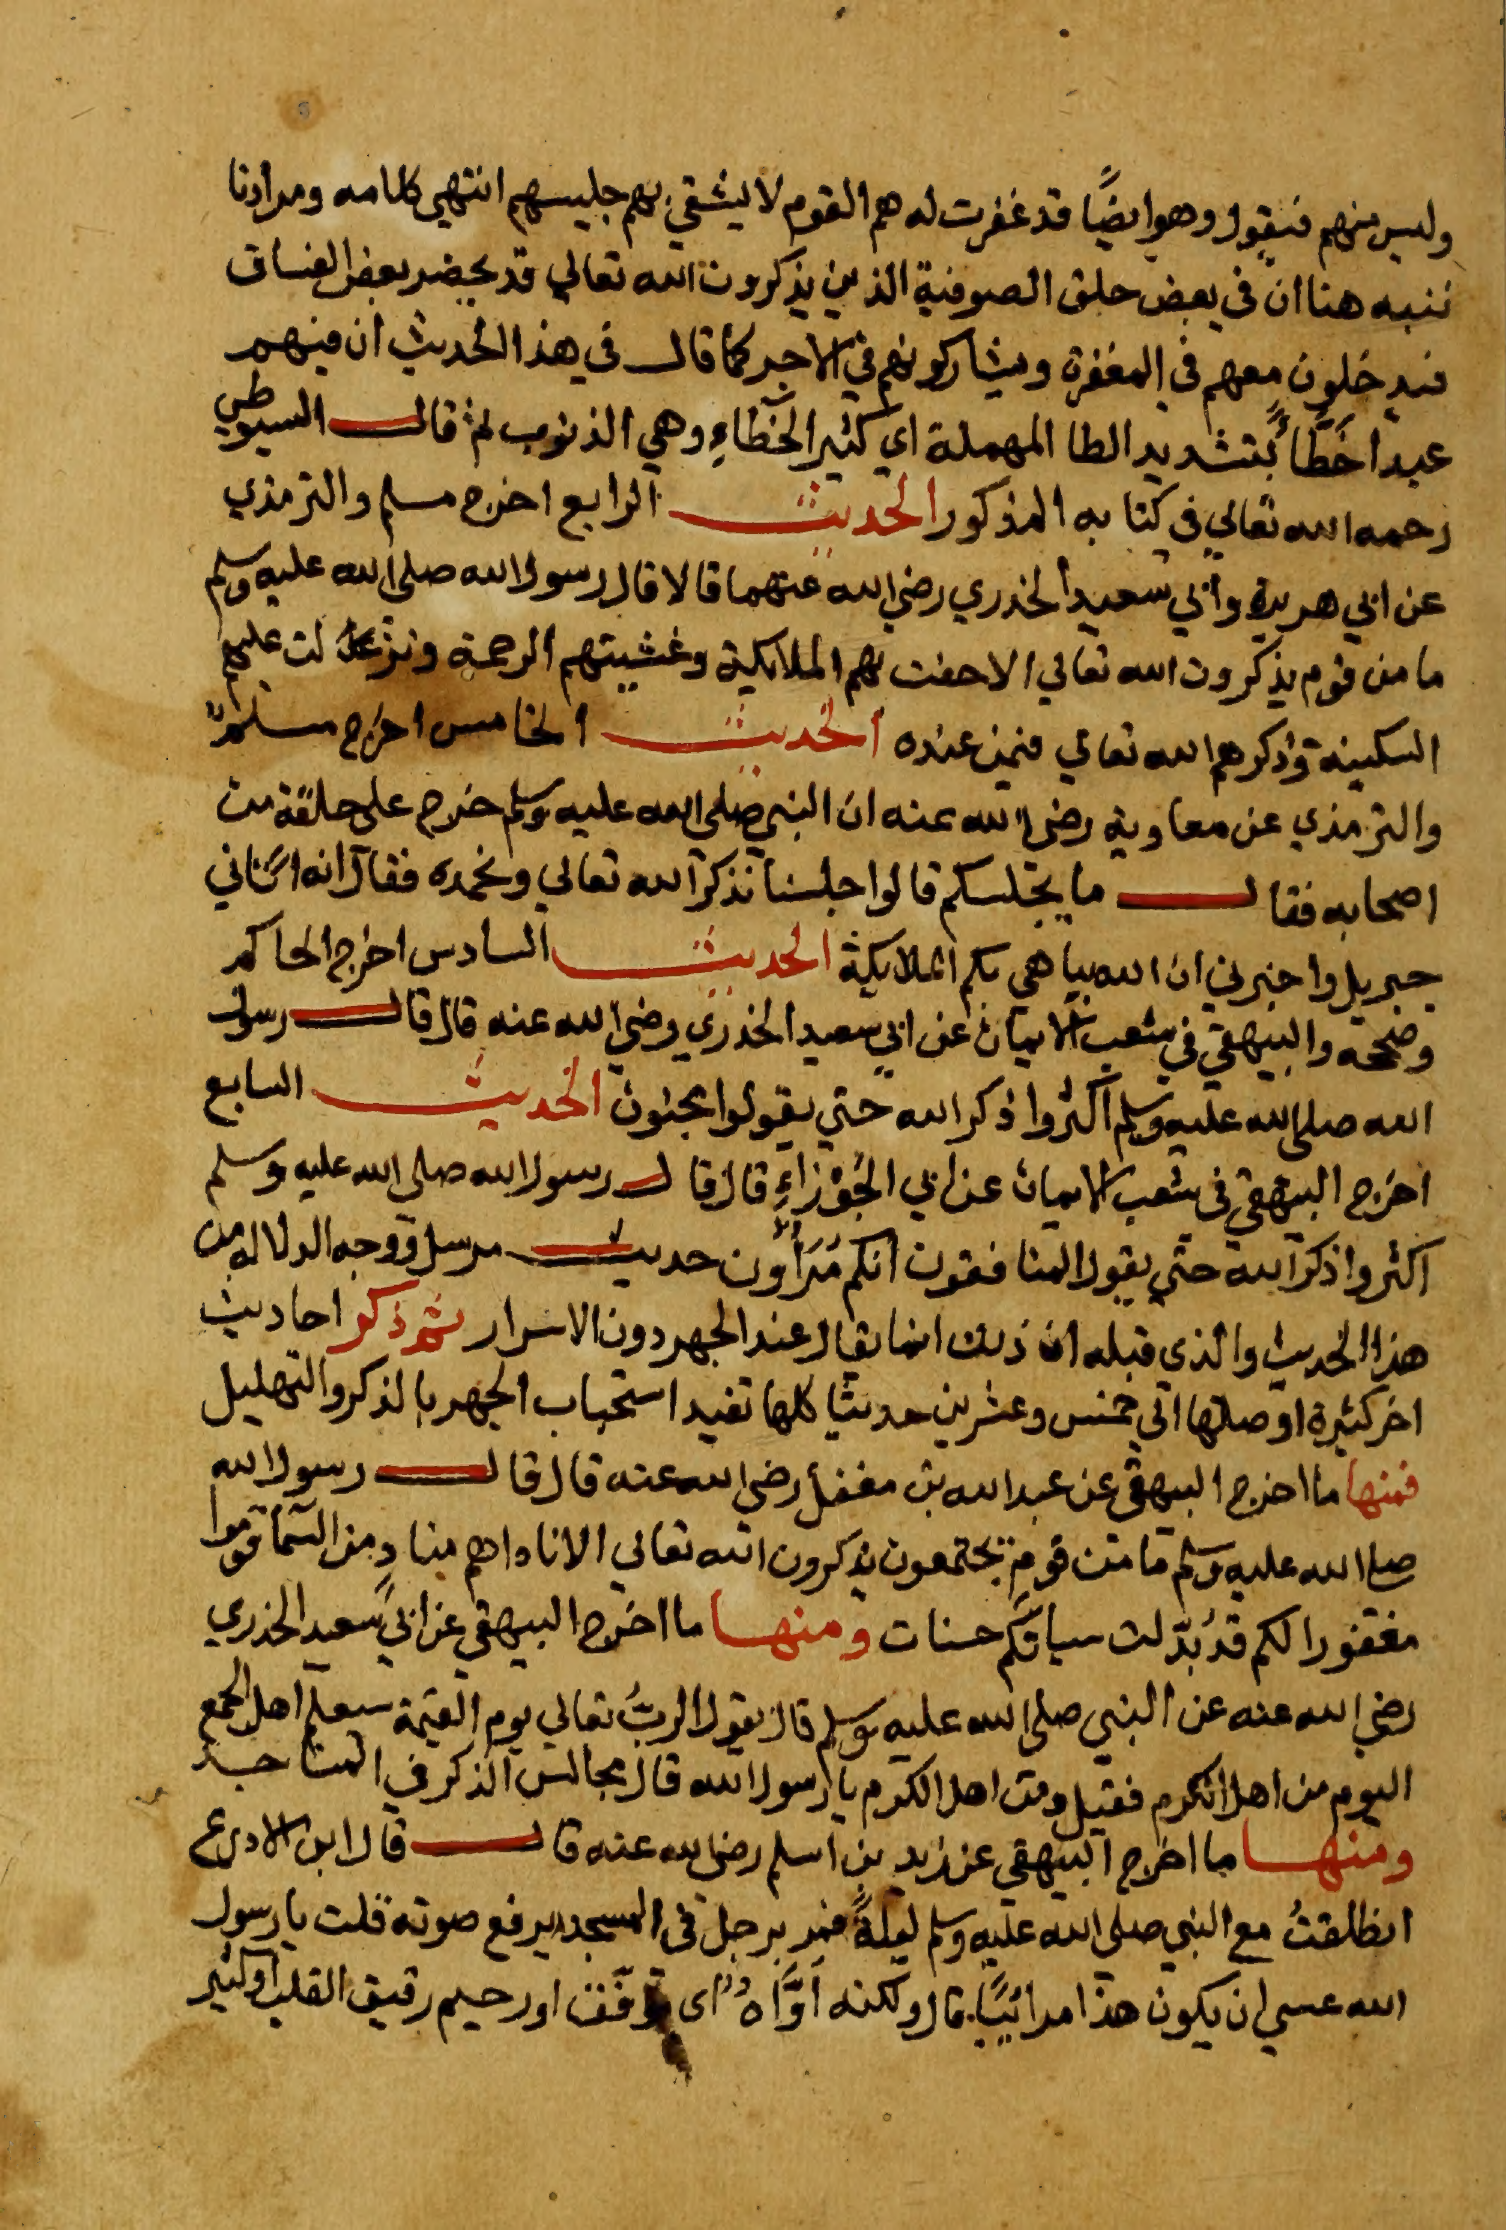 وليس منهم فيقول وهو ايضًا قد غفرت له هم القوم لا يشقي بهم جليسهم انتهي كلامه ومرادنا
ننبه هنا ان في بعض حلق الصوفية الذين يذكرون الله تعالي قد يحضر بعض الفساق
فيدخلون معهم في المغفرة ويشاركونهم في الاجر كما قال في هذا الحديث ان فيهم
عبدا خَطَّاءً بتشديد الطا المهملة اي كثير الخَطاءِ وهي الذنوب ثم قال السيوطي
رحمه الله تعالي في كتابه المذكور الحديث الرابع اخرج مسلم والترمذي
عن ابي هريرة وابي سعيد الخدري رضي الله عنهما قالا قال رسول الله صلى الله عليه وسلم
ما من قوم يذكرون الله تعالي الا حفت بهم الملايكة وغشيتهم الرحمة ونزلت عليهم
السكينة وذكرهم الله تعالي فيمن عنده الحديث الخامس اخرج مسلم
والترمذي عن معاوية رضي الله عنه ان النبي صلى الله عليه وسلم خرج على حلقة من
اصحابه فقال ما يجلسكم قالوا جلسنا نذكر الله تعالي ونحمده فقال انه اتاني
جبريل واخبرني ان الله يباهي بكم الملايكة الحديث السادس اخرج الحاكم
وصححه والبيهقي في شعب الايمان عن ابي سعيد الخدري رضي الله عنه قال قال رسول
الله صلى الله عليه وسلم اكثروا ذكر الله حتي يقولوا مجنون الحديث السابع
اخرج البيهقي في شعب الايمان عن ابي الجَوْزاءِ قال قال رسول الله صلى الله عليه وسلم
اكثروا ذكر الله حتي يقول المنافقون انكم مُرَاؤن حديث مرسل ووجه الدلالة من
هذا الحديث والذي قبله ان ذلك انما يقال عند الجهر دون الاسرار ثم ذكر احاديث
اخر كثيرة اوصلها الي خمس وعشرين حديثا كلها تفيد استحباب الجهر بالذكر والتهليل
فمنها ما اخرج البيهقي عن عبد الله بن مغفل رضي الله عنه قال قال رسول الله
صلى الله عليه وسلم ما من قوم يجتمعون يذكرون الله تعالي الا ناداهم مناد من السما قوموا
مغفورا لكم قد بُدّلت سياتكم حسنات ومنها ما اخرج البيهقي عن ابي سعيد الخدري
رضي الله عنه عن النبي صلى الله عليه وسلم قال يقول الربُّ تعالي يوم القيمة سيعلم اهل الجمع
اليوم من اهل الكرم فقيل ومن اهل الكرم يا رسول الله قال مجالس الذكر في المساجد
ومنها ما اخرج البيهقي عن زيد بن اسلم رضي الله عنه قال قال ابن الادرع
انطلقتُ مع النبي صلى الله عليه وسلم ليلةً فمر برجل في المسجد يرفع صوته قلت يا رسول
الله عسي ان يكون هذا مرائيًا قال ولكنه أوَّاهٌ اي اورحيم رقيق القلب او كثير